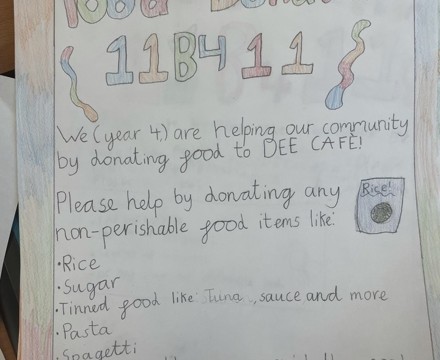 Food Donat
11B4 11
We (year 4) are helping our community
by donating food to DEE CAFÉ!
Please help by donating any
non-perishable food items like:
Rice!
•Rice
•Sugar
•Tinned food like Tuna, sauce and more
•Pasta
•Spagetti